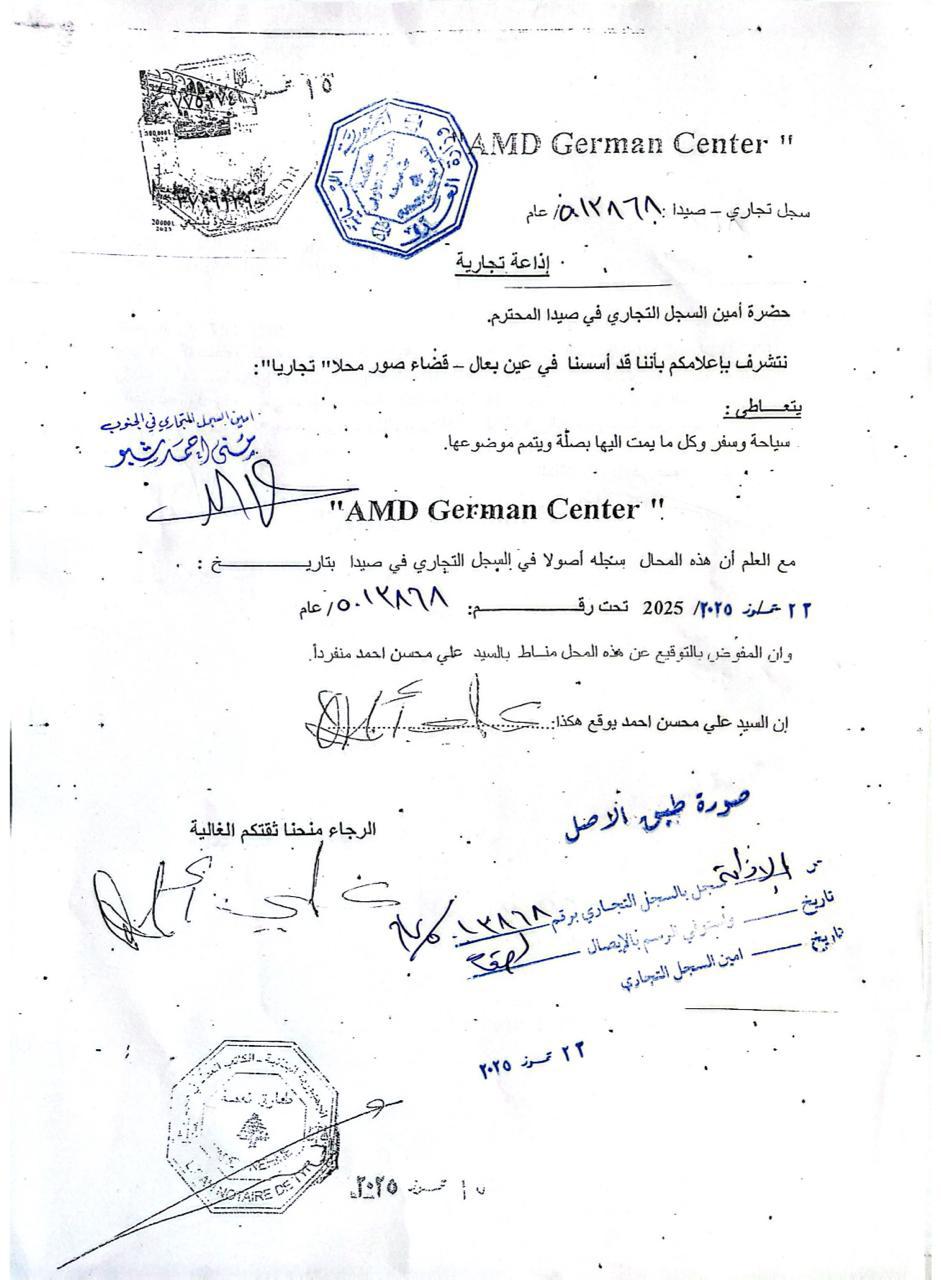 ١٥ تموز
"AMD German Center "
سجل تجاري – صيدا : ٥٠١٣٨٦٨/ عام
إذاعة تجارية
حضرة أمين السجل التجاري في صيدا المحترم.
نتشرف بإعلامكم بأننا قد أسسنا في عين بعال – قضاء صور محلا" تجاريا":
يتعـــاطى :
سياحة وسفر وكل ما يمت اليها بصلة ويتمم موضوعها.
امين السجل التجاري في الجنوب
"AMD German Center "
مع العلم أن هذه المحال سنجله أصولا في السجل التجاري في صيدا بتاريـــــــــخ :
٢٢ تموز ٢٠٢٥/ 2025 تحت رقـــــــــم: ٥٠١٣٨٦٨/ عام
وان المفوض بالتوقيع عن هذه المحل مناط بالسيد علي محسن احمد منفرداً.
إن السيد علي محسن احمد يوقع هكذا:
صورة طبق الاصل
الرجاء منحنا ثقتكم الغالية
الاذاعة سجل بالسجل التجاري برقم ١٣٨٦٨
تاريخ واستوفي الرسم بالإيصال
تاريخ امين السجل التجاري
٢٢ تموز ٢٠٢٥
NOTAIRE DE TYR
١٥ تموز ٢٠٢٥